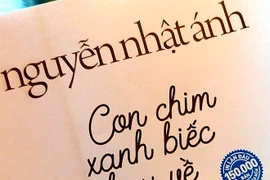 nguyễn nhật ánh
Con chim
xanh biếc
bay về
150.000